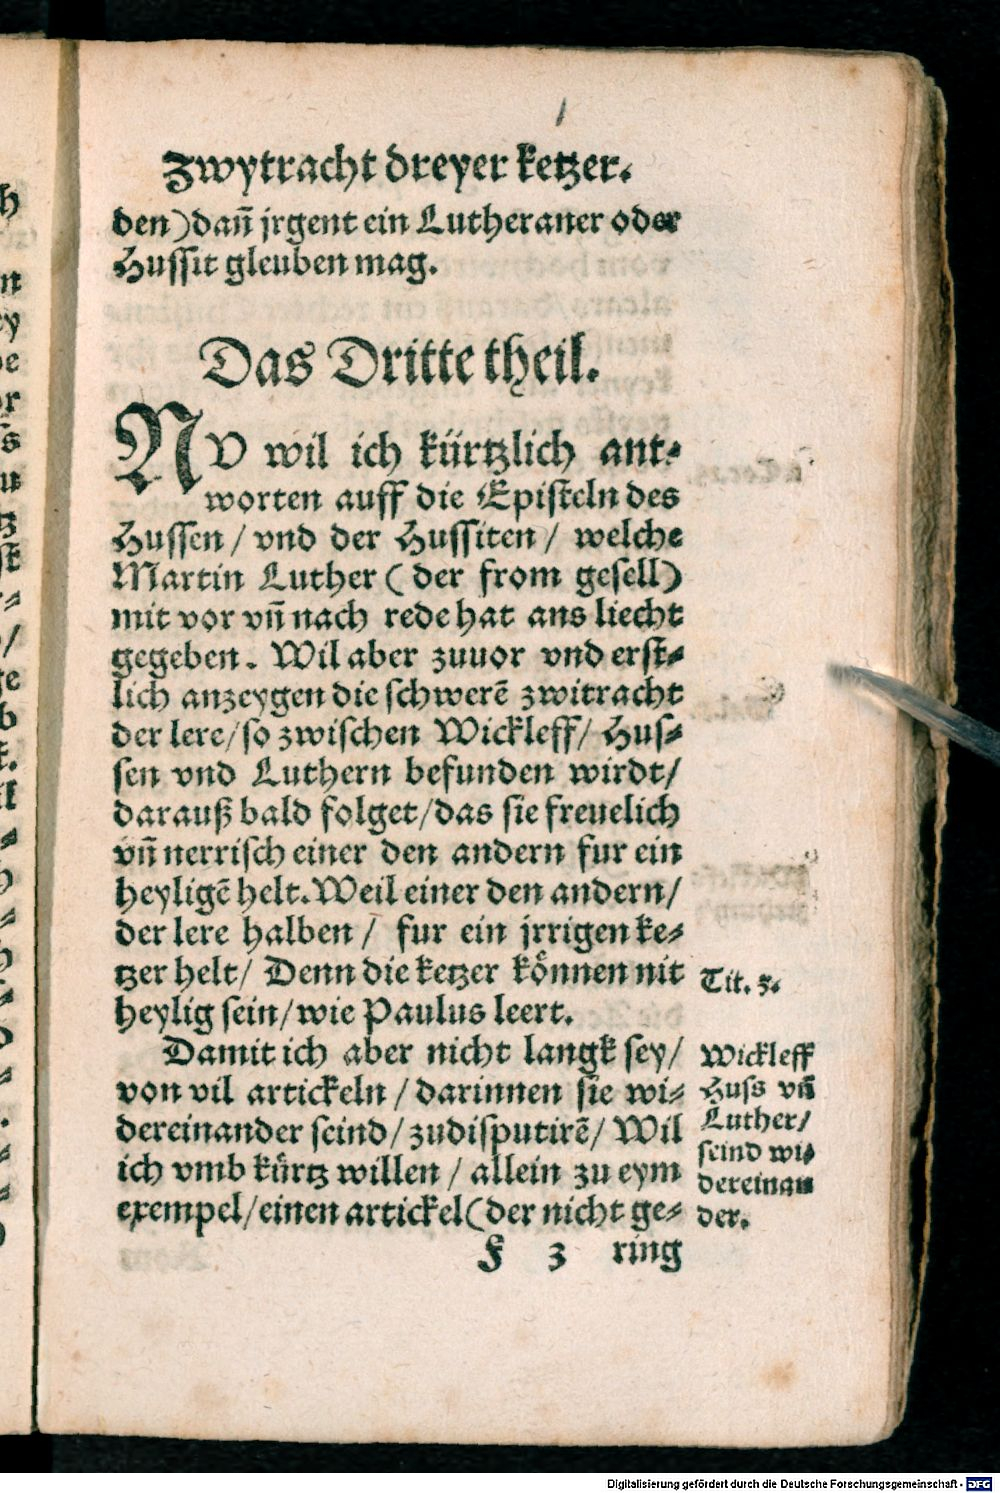 Zwytracht dreyer ketzer.
den) dañ jrgent ein Lutheraner oder
Hussit gleuben mag.
Das Dritte theil.
NV wil ich kürtzlich ant⸗
worten auff die Episteln des
Hussen / vnd der Hussiten / welche
Martin Luther ( der from gesell)
mit vor vñ nach rede hat ans liecht
gegeben. Wil aber zuuor vnd erst⸗
lich anzeygen die schwerẽ zwitracht
der lere/ so zwischen Wickleff/ Hus⸗
sen vnd Luthern befunden wirdt/
darauß bald folget/das sie freuelich
vñ nerrisch einer den andern fur ein
heyligẽ helt. Weil einer den andern/
der lere halben / fur ein jrrigen ke⸗
tzer helt/ Denn die ketzer koͤnnen nit
heylig sein/wie Paulus leert.
Tit. 3.
Damit ich aber nicht langk sey/
von vil artickeln / darinnen sie wi⸗
dereinander seind/ zudisputirẽ/ Wil
ich vmb kürtz willen / allein zu eym
exempel/einen artickel (der nicht ge⸗
Wickleff
Huss vñ
Luther/
seind wi⸗
dereinan
der.
F 3 ring
Digitalisierung gefördert durch die Deutsche Forschungsgemeinschaft - DFG